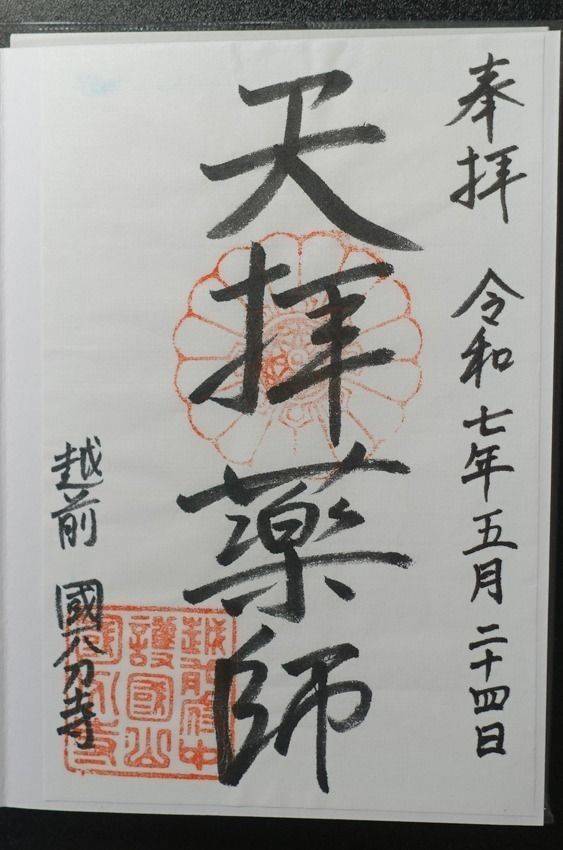 奉拝 令和七年五月二十四日
天拝薬師
越前 國分寺
越前府中
護國山
國分寺